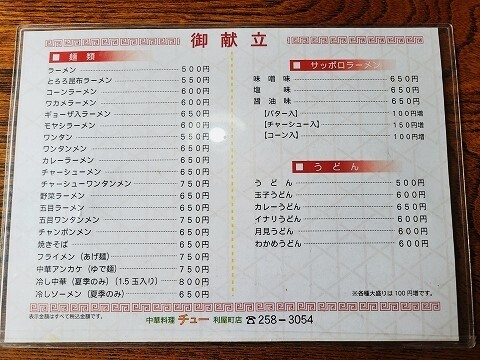 御献立
■ 麺類
ラーメン 500円
とろろ昆布ラーメン 550円
コーンラーメン 600円
ワカメラーメン 600円
ギョーザ入ラーメン 600円
モヤシラーメン 600円
ワンタン 550円
ワンタンメン 650円
カレーラーメン 650円
チャーシューメン 650円
チャーシューワンタンメン 750円
野菜ラーメン 650円
五目ラーメン 650円
五目ワンタンメン 750円
チャンポンメン 650円
焼きそば 650円
フライメン（あげ麺） 750円
中華アンカケ（ゆで麺） 750円
冷し中華（夏季のみ）（1.5玉入り） 800円
冷しソーメン（夏季のみ） 650円
■ サッポロラーメン
味噌味 650円
塩味 650円
醤油味 650円
【バター入】 100円増
【チャーシュー入】 150円増
【コーン入】 100円増
■ うどん
うどん 500円
玉子うどん 600円
カレーうどん 650円
イナリうどん 600円
月見うどん 600円
わかめうどん 600円
※各種大盛りは100円増です。
表示金額はすべて税込金額です。
中華料理 チュー 利屋町店 ☎258-3054